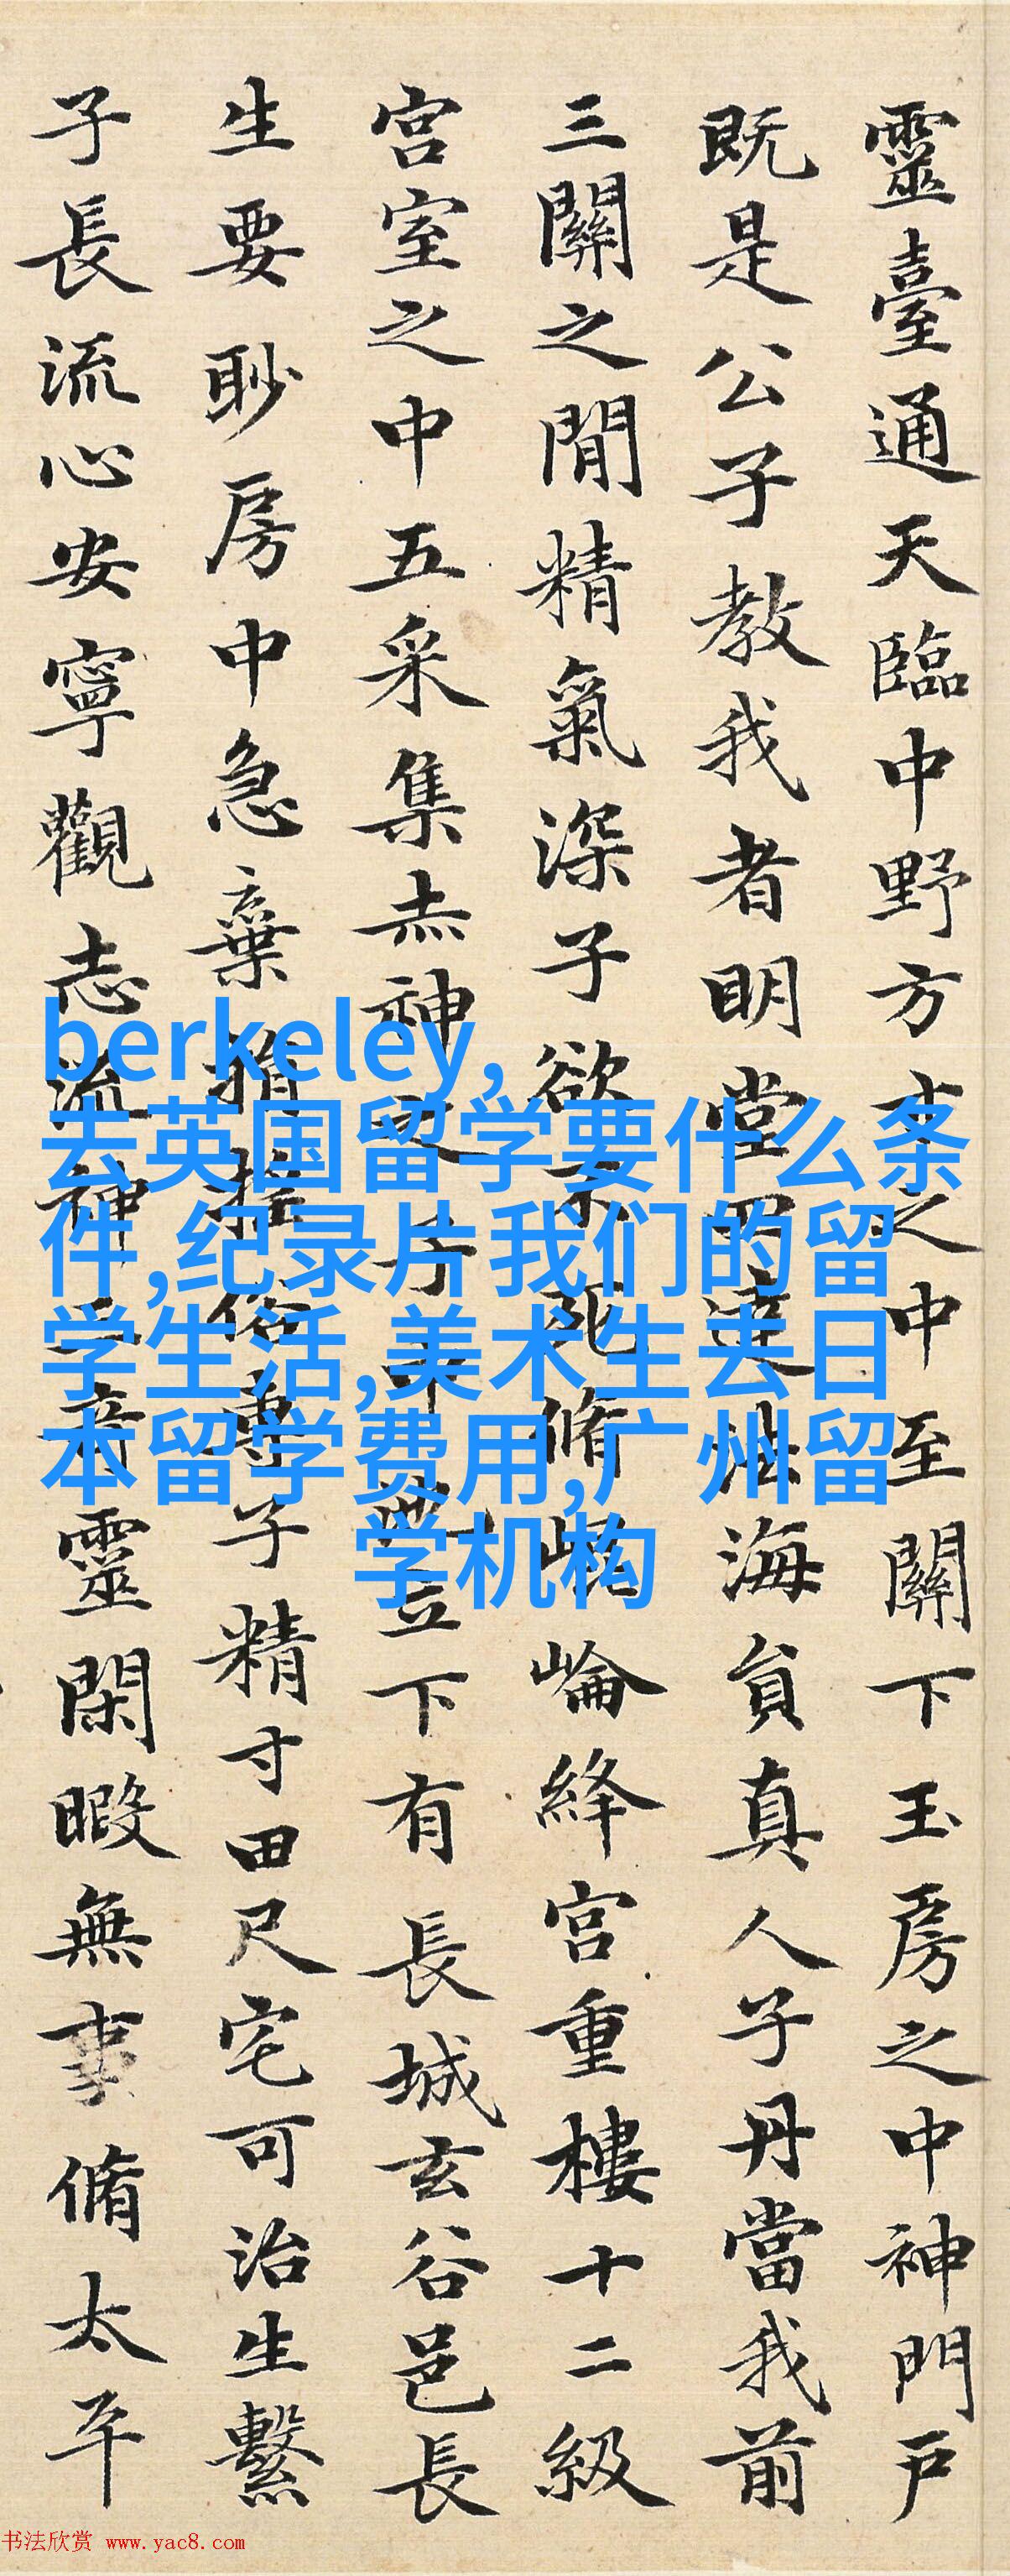 靈臺通天臨中野方寸之中至關下玉房之中神門戶
既是公子教我者明堂四達法海貟真人子丹當我前
三關之閒精氣深子欲不死脩崐崘絳宮重樓十二級
宮室之中五采集赤神之子中池立下有長城玄谷邑長
生要眇房中急棄捐搖俗專子精寸田尺宅可治生繫
子長流心安寧觀志流神三奇靈閑暇無事脩太平
berkeley,
去英国留学要什么条
件,纪录片我们的留
学生活,美术生去日
本留学费用,广州留
学机构
书法欣赏 www.yac8.com